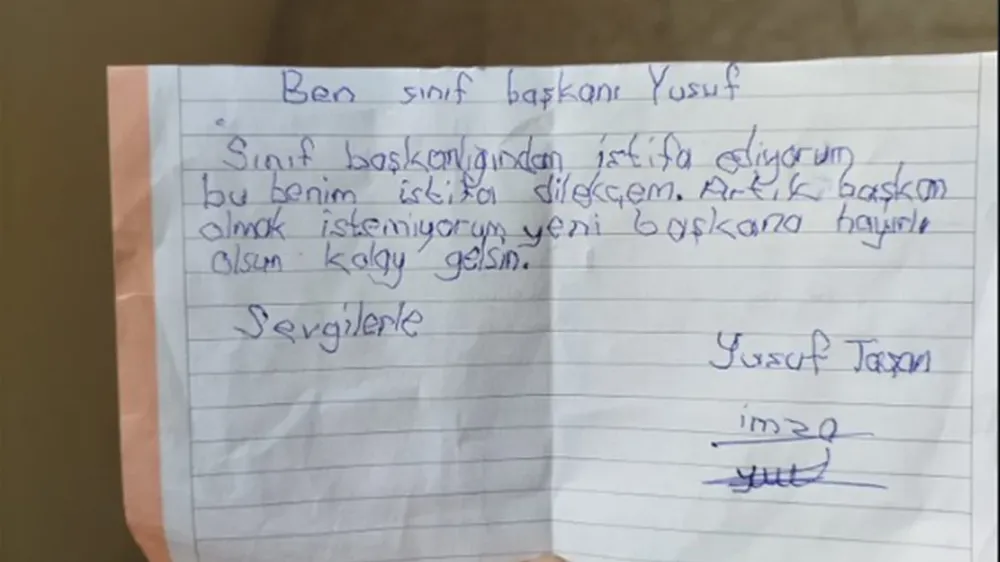 Ben sınıf başkanı Yusuf
Sınıf başkanlığından istifa ediyorum
bu benim istifa dilekçem. Artık başkan
olmak istemiyorum yeni başkana hayırlı
olsun kolay gelsin.
Sevgilerle
Yusuf Taşan
imza